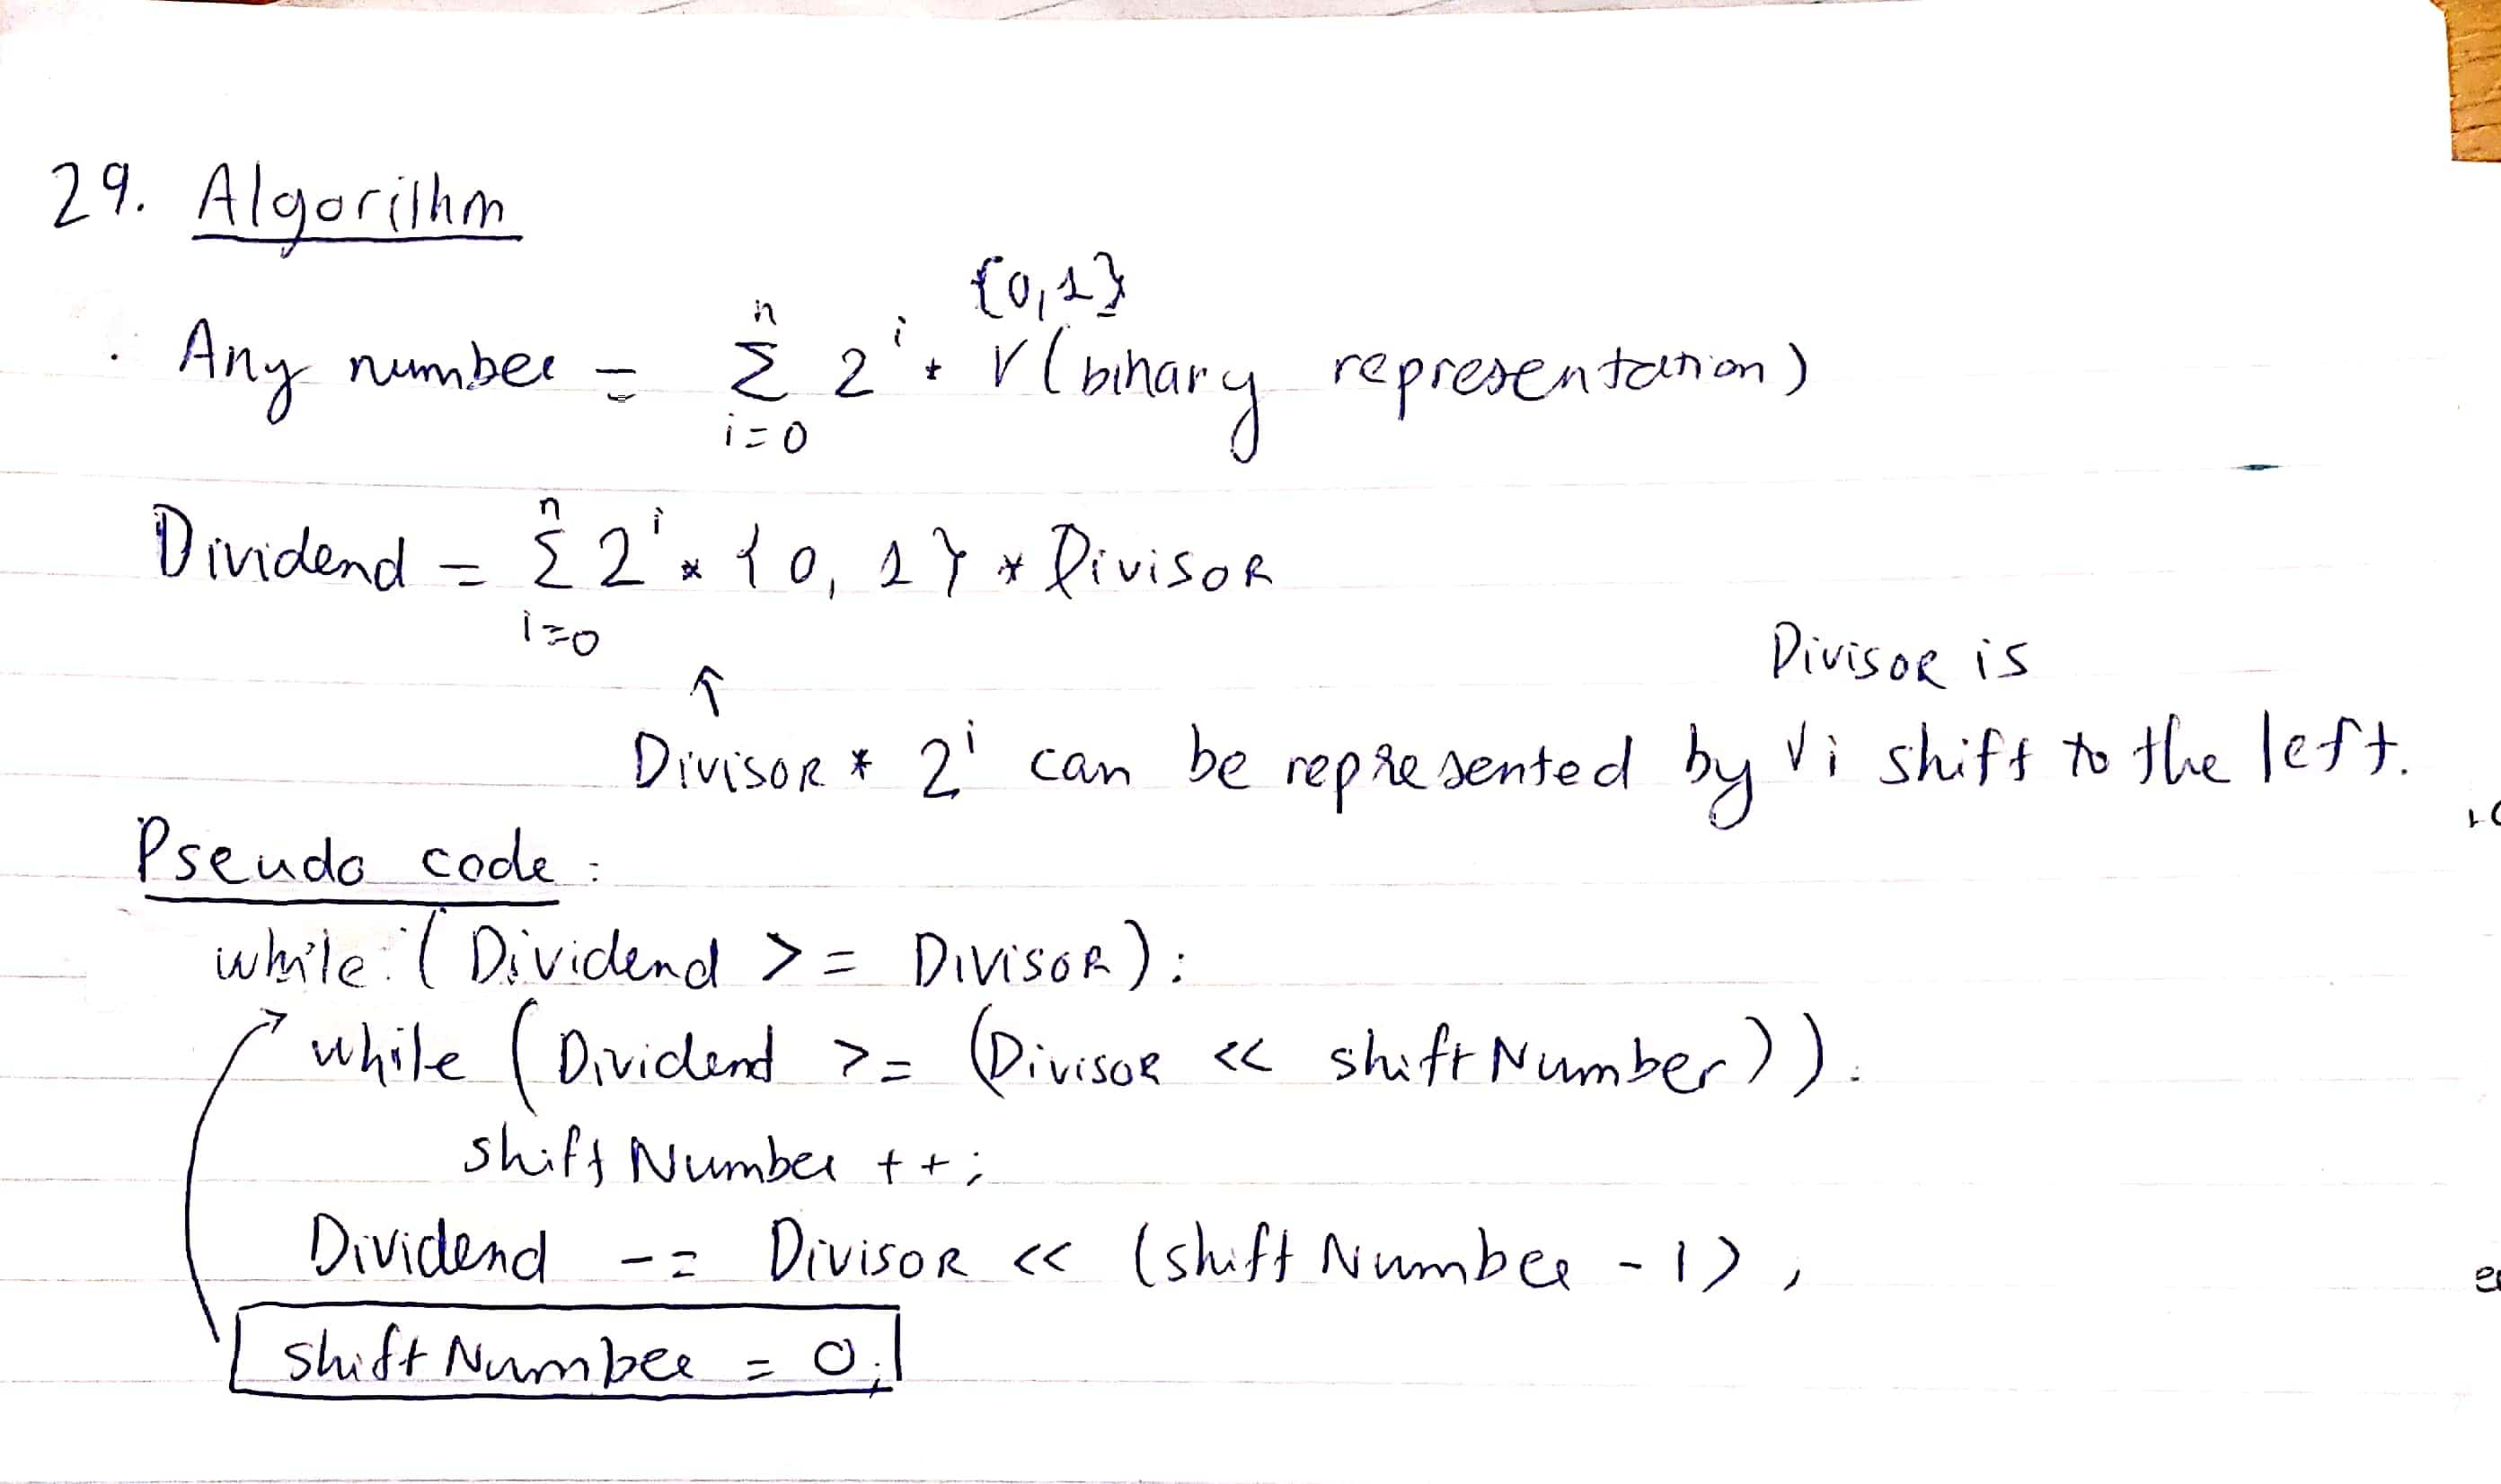 29. Algorithm
{0,1}
. Any number = n Σ i=0 2^i * V (binary representation)
Dividend = n Σ i=0 2^i * {0, 1} * Divisor
↑
Divisor is
Divisor * 2^i can be represented by V i shift to the left.
Pseudo code:
while: (Dividend >= Divisor):
while (Dividend >= (Divisor << shiftNumber)):
shiftNumber ++;
Dividend -= Divisor << (shiftNumber - 1);
shiftNumber = 0;